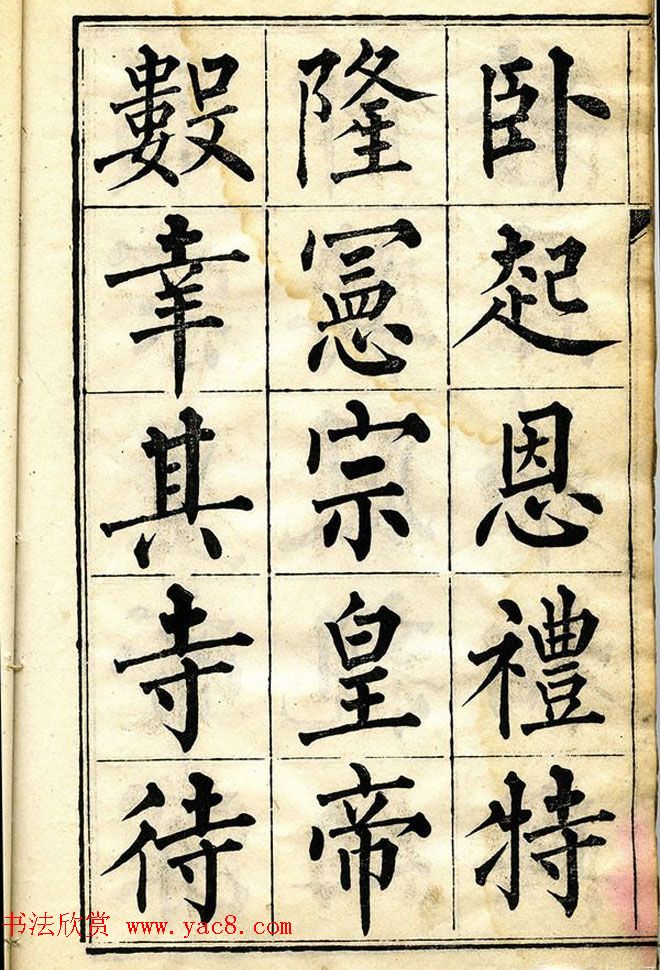 卧起恩禮特
隆憲宗皇帝
數幸其寺待
书法欣赏 www.yac8.com